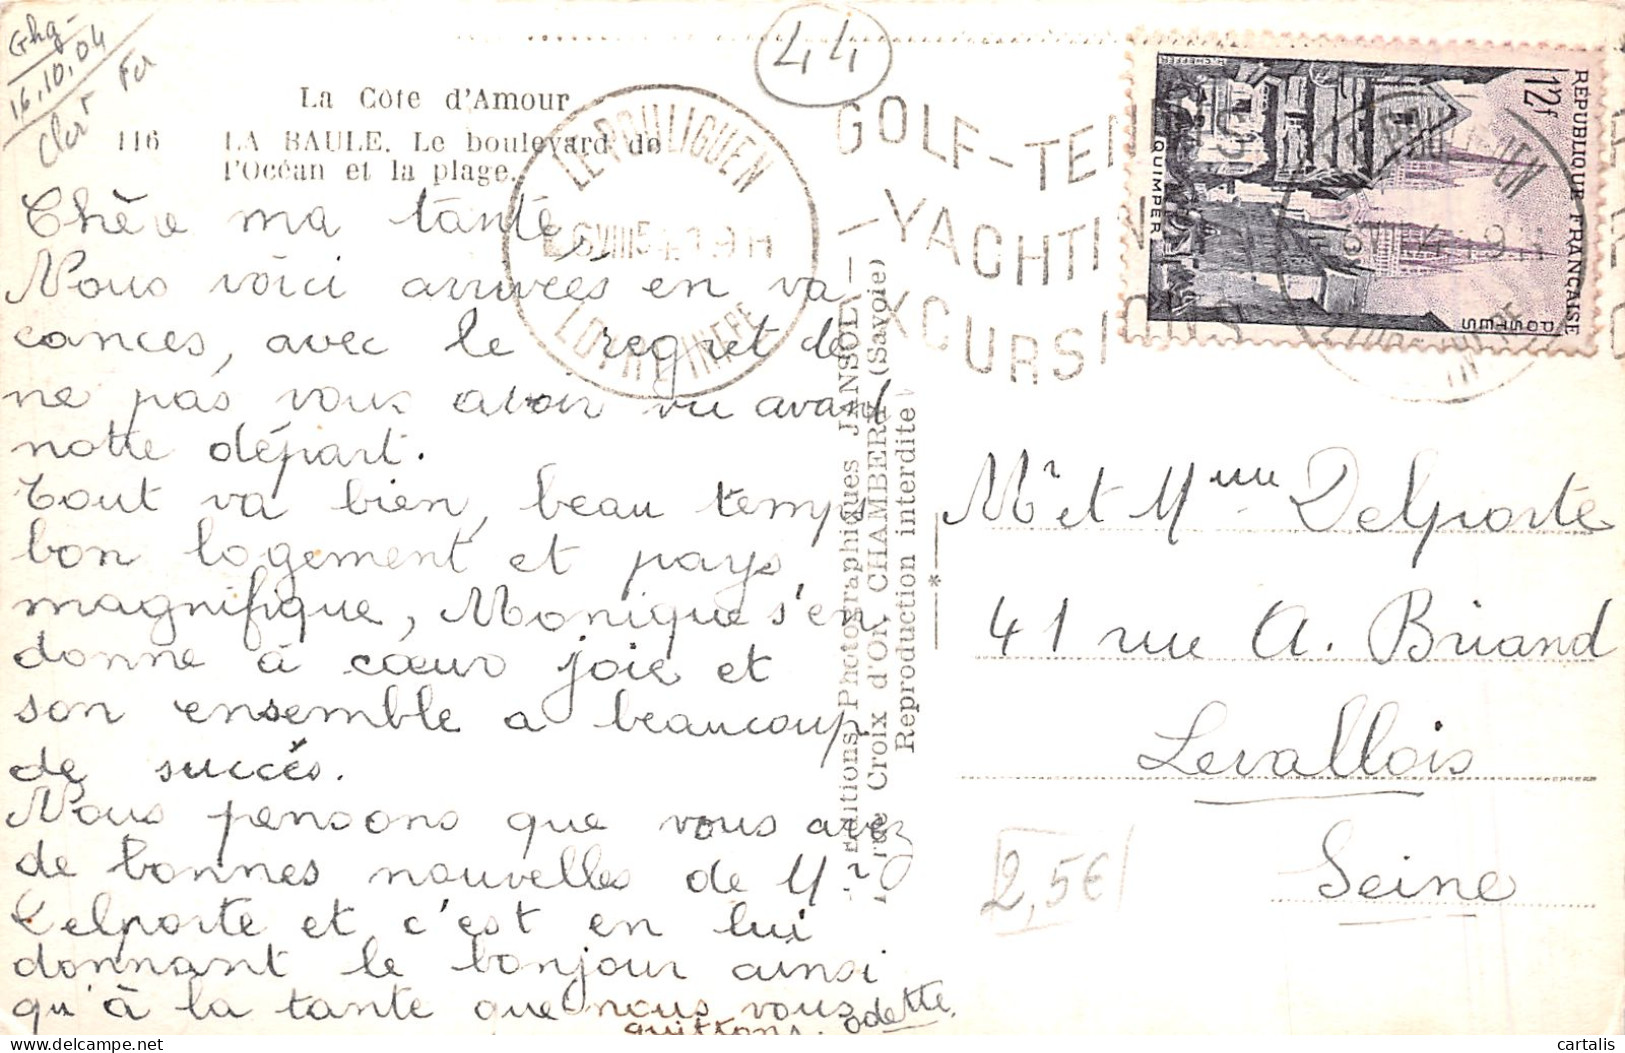 Ghg
16.10.04
44
La Côte d'Amour
116 LA BAULE. Le boulevard de
l'Océan et la plage.
Chère ma tante,
Nous voici arrivées en va
cances, avec le regret de
ne pas vous avoir vu avant
notre départ.
Tout va bien, beau temps
bon logement et pays
magnifique, Monique s'en
donne à cœur joie et
son ensemble a beaucoup
de succès.
Nous pensons que vous avez
de bonnes nouvelles de Mr
Delporte et c'est en lui
donnant le bonjour ainsi
qu'à la tante que nous vous
quittons. Odette.
LE POULIGUEN
LOIRE INFRE
GOLF-TEN
YACHTIN
XCURSIONS
Editions Photographiques JANSOL
Croix d'Or, CHAMBERY (Savoie)
Reproduction interdite
REPUBLIQUE FRANÇAISE
12f
POSTES
QUIMPER
H. CHEFFER
Mr et Mme Delporte
41 rue A. Briand
Levallois
Seine
2,5€
cartalis